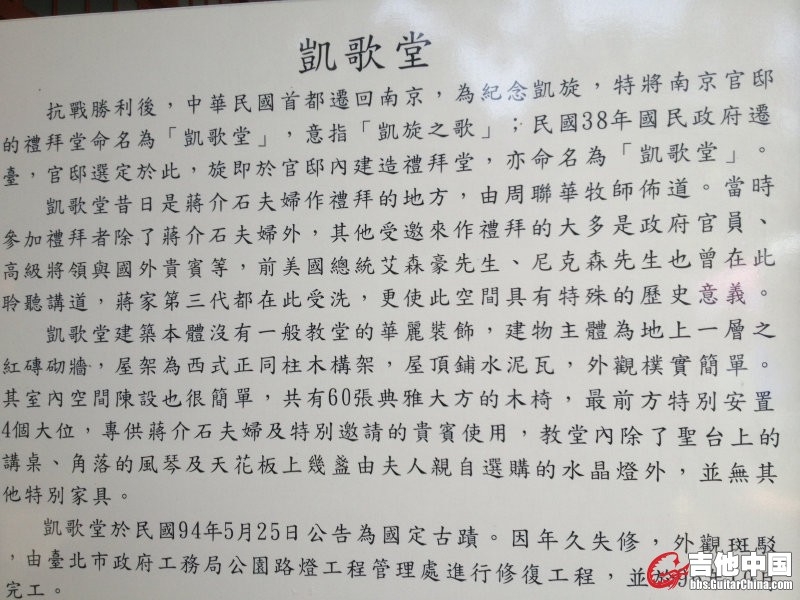 凱歌堂
抗戰勝利後，中華民國首都遷回南京，為紀念凱旋，特將南京官邸
的禮拜堂命名為「凱歌堂」，意指「凱旋之歌」；民國38年國民政府遷
臺，官邸選定於此，旋即於官邸內建造禮拜堂，亦命名為「凱歌堂」。
凱歌堂昔日是蔣介石夫婦作禮拜的地方，由周聯華牧師佈道。當時
參加禮拜者除了蔣介石夫婦外，其他受邀來作禮拜的大多是政府官員、
高級將領與國外貴賓等，前美國總統艾森豪先生、尼克森先生也曾在此
聆聽講道，蔣家第三代都在此受洗，更使此空間具有特殊的歷史意義。
凱歌堂建築本體沒有一般教堂的華麗裝飾，建物主體為地上一層之
紅磚砌牆，屋架為西式正同柱木構架，屋頂鋪水泥瓦，外觀樸實簡單。
其室內空間陳設也很簡單，共有60張典雅大方的木椅，最前方特別安置
4個大位，專供蔣介石夫婦及特別邀請的貴賓使用，教堂內除了聖台上的
講桌、角落的風琴及天花板上幾盞由夫人親自選購的水晶燈外，並無其
他特別家具。
凱歌堂於民國94年5月25日公告為國定古蹟。因年久失修，外觀斑駁
，由臺北市政府工務局公園路燈工程管理處進行修復工程，並於
完工。
吉他中国
bbs.GuitarChina.com